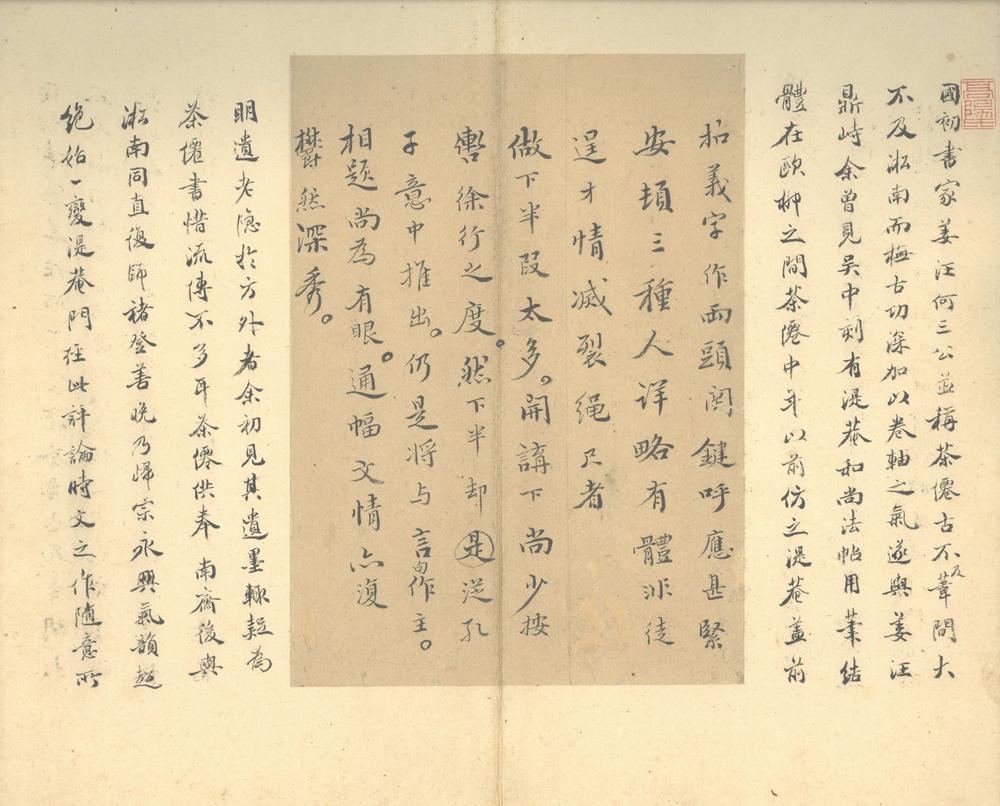 國初書家姜汪何三公並稱茶僊古不及葦間大
不及淞南而橅古切深加以卷軸之氣遂與姜汪
鼎峙余曾見吳中刻有湜菴和尚法帖用筆結
體在歐柳之間茶僊中年以前仿之湜菴蓋前
拈義字作兩頭関鍵呼應甚緊
安頓三種人详略有體非徒
逞才情滅裂繩尺者
做下半段太多。開講下尚少按
轡徐行之度。然下半却是從孔
子意中推出。仍是将与言句作主。
相題尚為有眼。通幅文情亦復
欝然深秀。
明遺老隱於方外者余初見其遺墨輒疑為
茶僊書惜流傳不多耳茶僊供奉 南齋後與
淞南同直復師褚登善晚乃歸宗永興氣韻超
絶始一變湜菴門徑此評論時文之作隨意所